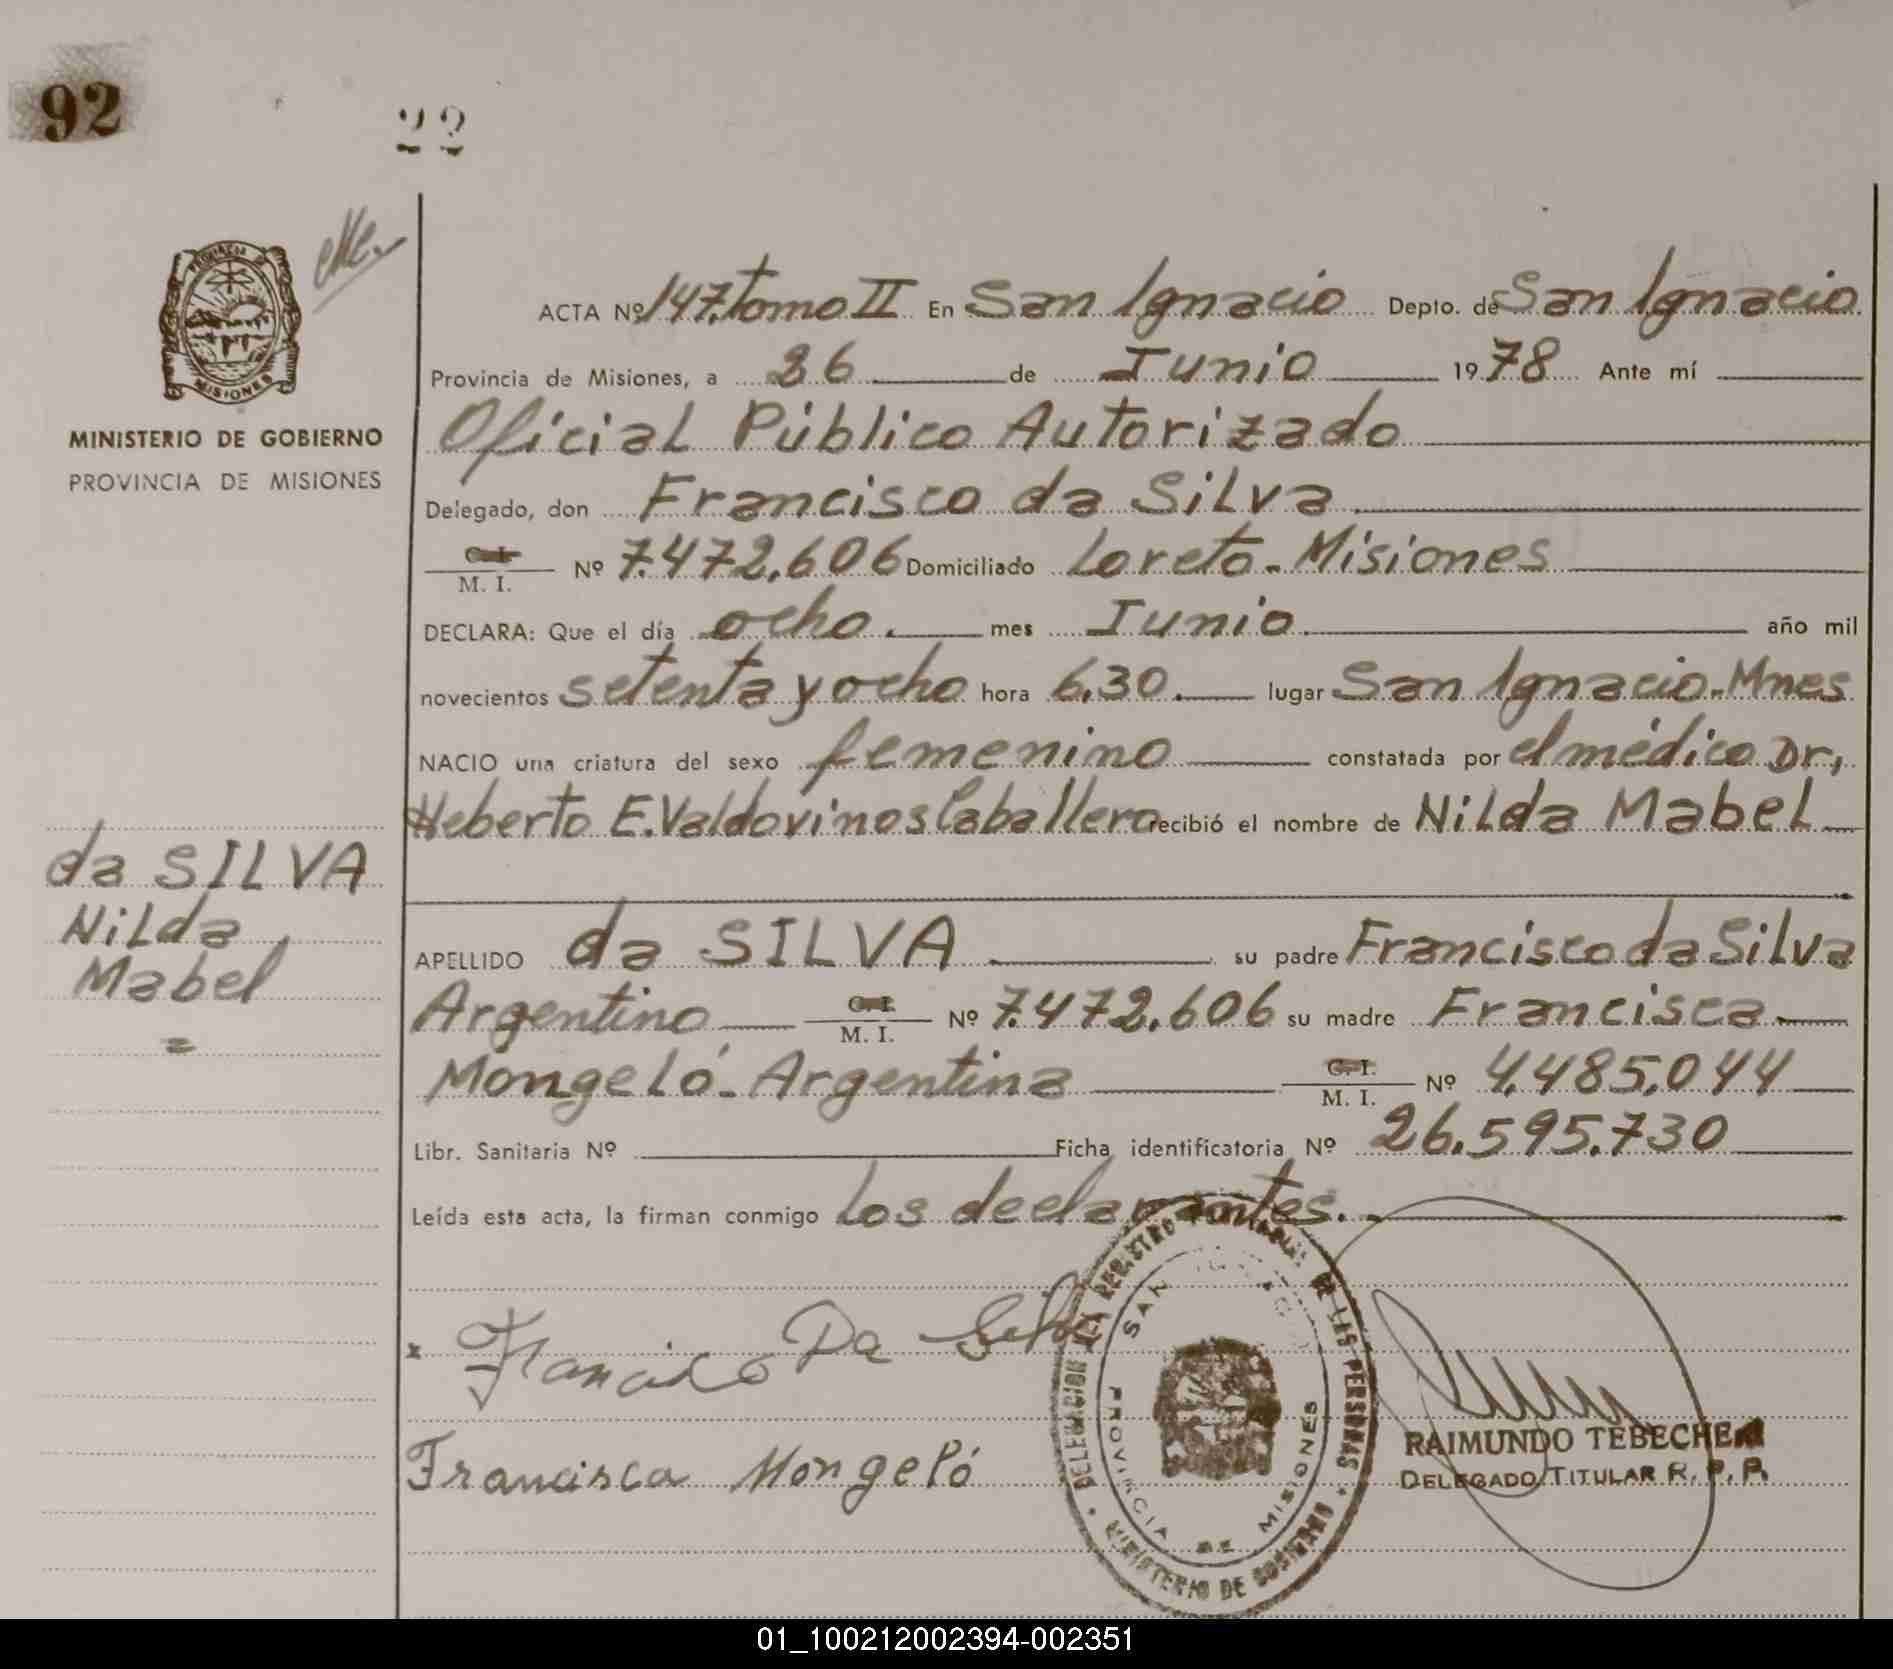 92
22
PROVINCIA DE
MISIONES
MINISTERIO DE GOBIERNO
PROVINCIA DE MISIONES
ACTA Nº 147. tomo II En San Ignacio Depto. de San Ignacio
Provincia de Misiones, a 26 de Junio 1978 Ante mí
Oficial Público Autorizado
Delegado, don Francisco da Silva
C. I.
M. I. Nº 7.472.606 Domiciliado Loreto - Misiones
DECLARA: Que el día ocho. mes Junio año mil
novecientos setenta y ocho hora 6,30. lugar San Ignacio - Mnes
NACIO una criatura del sexo femenino constatada por el médico Dr,
Heberto E. Valdovinos Caballero recibió el nombre de Nilda Mabel
da SILVA
Nilda
Mabel
=
APELLIDO da SILVA su padre Francisco da Silva
Argentino C. I.
M. I. Nº 7.472.606 su madre Francisca
Mongeló - Argentina C. I.
M. I. Nº 4.485.044
Libr. Sanitaria Nº Ficha identificatoria Nº 26.595.730
Leída esta acta, la firman conmigo los declarantes.
x Francisco Da Silva
Francisca Mongeló
DELEGACION DEL REGISTRO PROVINCIAL DE LAS PERSONAS
MINISTERIO DE GOBIERNO
SAN IGNACIO
PROVINCIA DE MISIONES
RAIMUNDO TEBECHERI
DELEGADO TITULAR R. P. P.
01_100212002394-002351